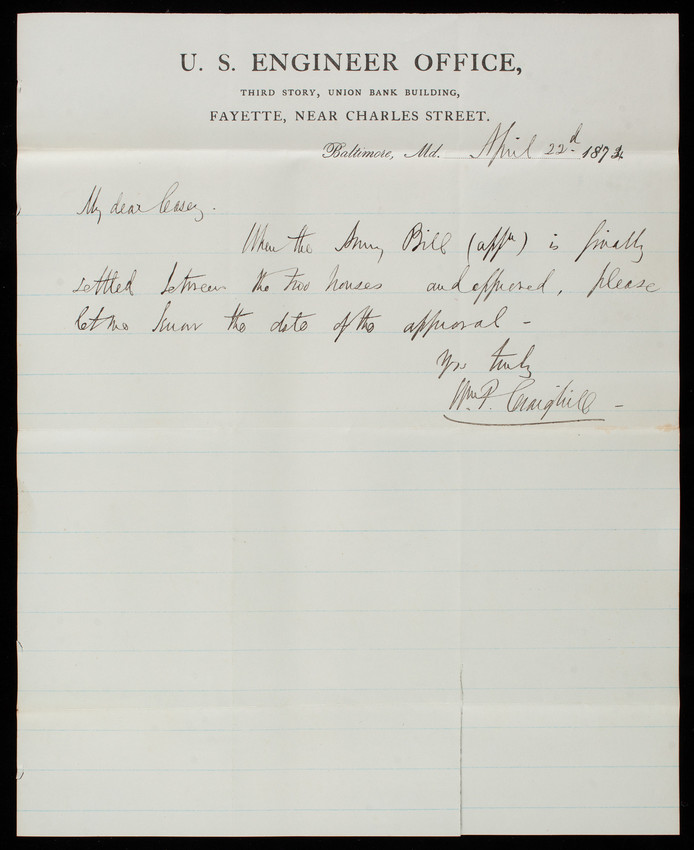 U. S. ENGINEER OFFICE,
THIRD STORY, UNION BANK BUILDING,
FAYETTE, NEAR CHARLES STREET.
Baltimore, Md. April 22d 187
My dear Casey.
When the Army Bill (appn) is finally
settled between the two houses and approved, please
let me know the date of the approval –
Yrs truly
Wm. P. Craighill –